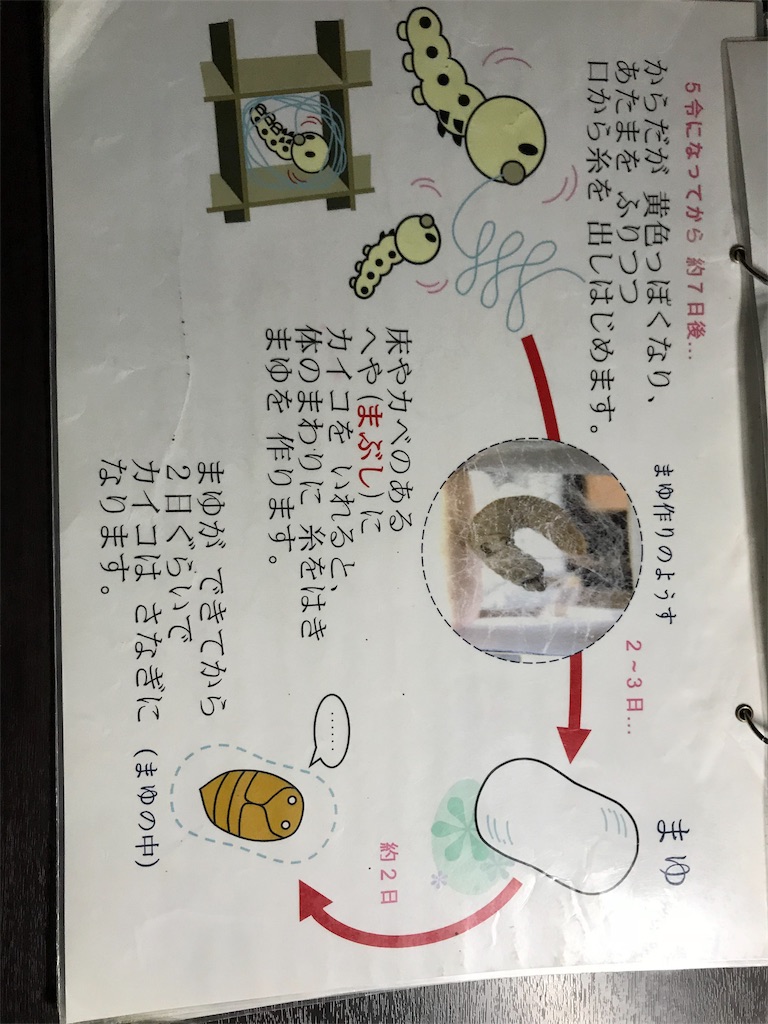 5令になってから 約7日後…
からだが 黄色っぽくなり、
あたまを ふりつつ
口から糸を 出しはじめます。
まゆ作りのようす
2～3日…
まゆ
床やカベのある
へや(まぶし)に
カイコを いれると、
体のまわりに 糸をはき
まゆを 作ります。
約2日
……
まゆが できてから
2日ぐらいで
カイコは さなぎに
なります。
(まゆの中)